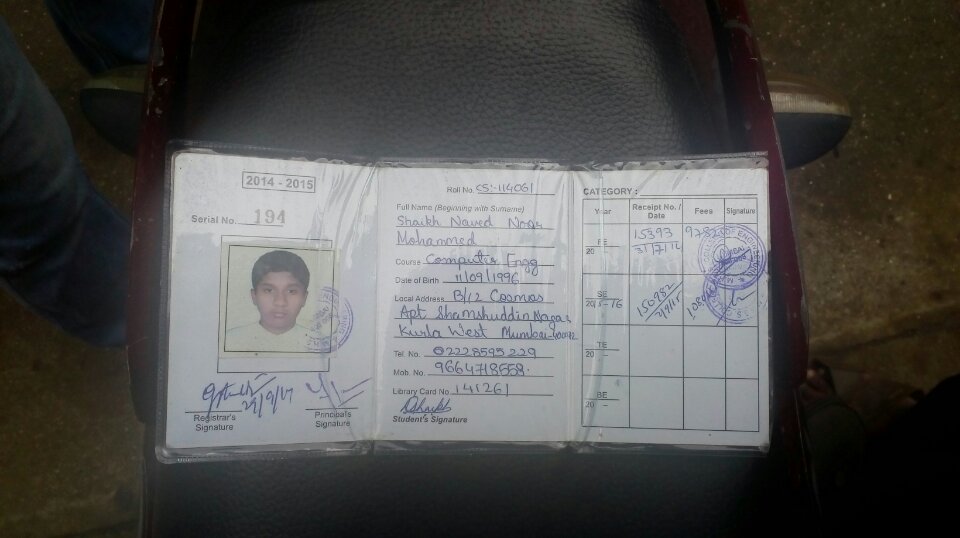 2014 - 2015
Serial No. 194
Registrar's
Signature
Principal's
Signature
Roll No. CS:-114061
Full Name (Beginning with Surname)
Shaikh Naved Noor
Mohammed
Course Computer Engg
Date of Birth 11/09/1996
Local Address B/12 Cosmos
Apt Shamshuddin Nagar
Kurla West Mumbai-
Tel. No. 02228595229
Mob. No. 9664718558.
Library Card No. 141261
Student's Signature
CATEGORY :
Year Receipt No. / Date Fees Signature
FE 20 15393 31/7/12
SE 20 -16 156982
TE 20 -
BE 20 -